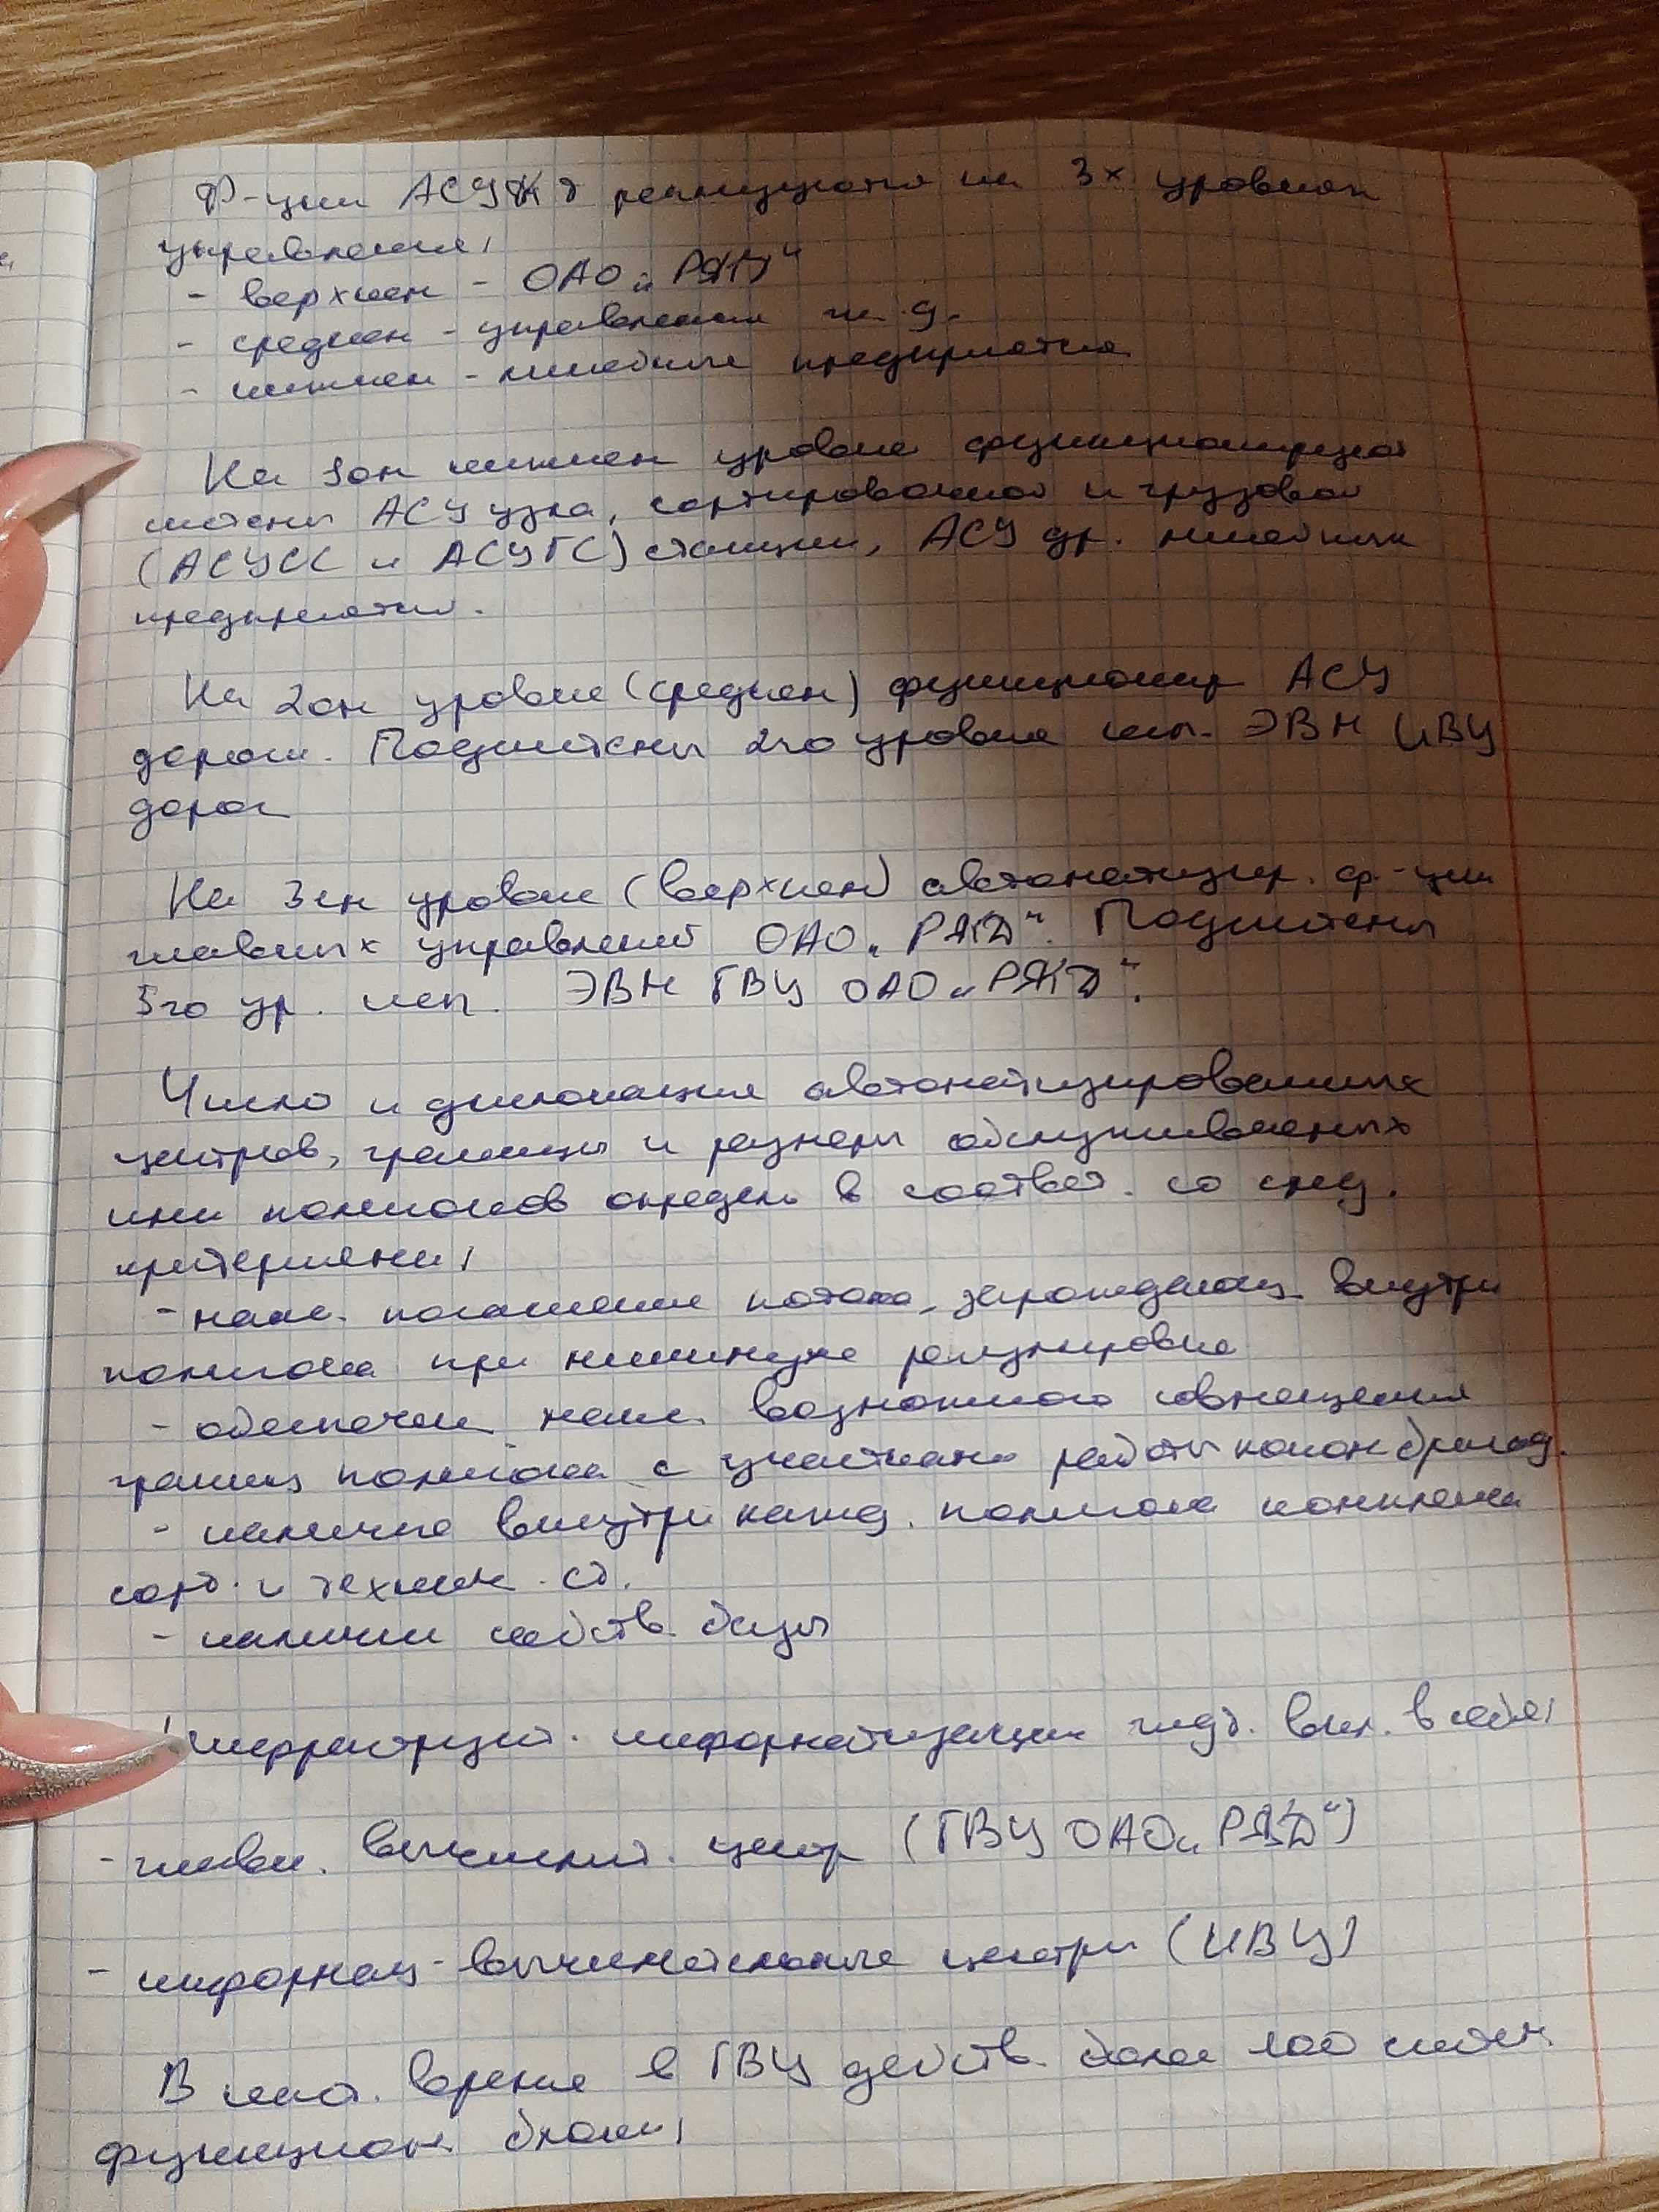 Ф-ции АСУЖТ реализуются на 3х уровнях
управления,
- верхнем - ОАО „РЖД"
- среднем - управления ж.д.
- нижнем - линейные предприятия
На 1ом нижнем уровне функционируют
системы АСУ узла, сортировочной и грузовой
(АСУСС и АСУГС) станции, АСУ др. линейных
предприятий.
На 2ом уровне (среднем) функционир АСУ
дороги. Подсистемы 2го уровня исп. ЭВМ ИВЦ
дорог
На 3ем уровне (верхнем) автоматизир. ф-ции
главных управлений ОАО „РЖД". Подсистемы
3го ур. исп. ЭВМ ГВЦ ОАО „РЖД".
Число и дислокация автоматизированных
центров, границы и размеры обслуживаемых
ими полигонов определ в соответ. со след.
критериями,
- макс. погашение потока, зарождающ. внутри
полигона при минимуме регулировки
- обеспечен макс. возможного совмещения
границ полигона с участками работы локом бригад.
- наличие внутри кажд. полигона комплекса
сорт. и технич. ст.
- наличии собств. базы
информатизации ж.д.т. вкл. в себя,
- главн. вычислит. центр (ГВЦ ОАО „РЖД")
- информац-вычислительные центры (ИВЦ)
В наст. время в ГВЦ действ. более 100 систем.
функцион. блоки,